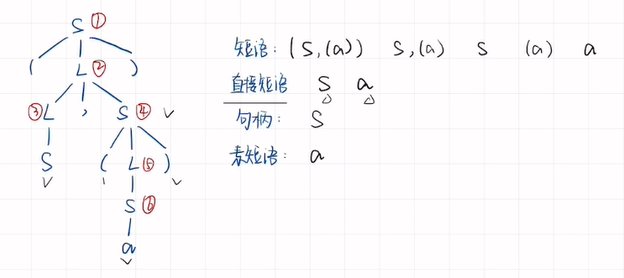 S ①
( L ② )
③ L , S ④
S ( L ⑤ )
S ⑥
a
短语: (S,(a)) S,(a) S (a) a
直接短语 S a
句柄: S
素短语: a